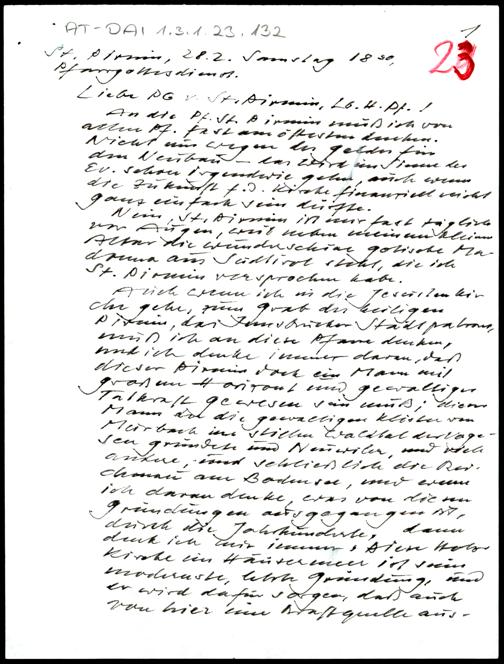 AT-DAI 1.3.1.23.132
1
23
St. Pirmin, 28.2. Samstag 18 30,
Pfarrgottesdienst.
Liebe PG v. St. Pirmin, Lb. H. Pf. !
An die Pf. St. Pirmin muß ich von
allen Pf. fast am öftesten denken.
Nicht nur wegen des Geldes für
den Neubau – das wird im Sinne des
Ev. schon irgendwie gehn, auch wenn
die Zukunft f. d. Kirche finanziell nicht
ganz einfach sein dürfte.
Nein, St. Pirmin ist mir fast täglich
vor Augen, weil neben meinem kleinen
Altar die wunderschöne gotische Ma-
donna aus Südtirol steht, die ich
St. Pirmin versprochen habe.
Auch wenn ich in die Jesuitenkir-
che gehe, zum Grab des heiligen
Pirmin, des Innsbrucker Stadtpatrons,
muß ich an diese Pfarre denken,
und ich denke immer daran, daß
dieser Pirmin doch ein Mann mit
großem Horizont und gewaltiger
Tatkraft gewesen sein muß; dieser
Mann der die gewaltigen Klöster von
Murbach im stillen Waldtal der Voge-
sen gründete und Neuwiler, und viele
andere, und schließlich die Rei-
chenau am Bodensee, und wenn
ich daran denke, was von diesen
Gründungen ausgegangen ist,
durch die Jahrhunderte, dann
denk ich mir immer: Diese Holz-
kirche im Häusermeer ist seine
modernste, letzte Gründung, und
er wird dafür sorgen, daß auch
von hier eine Kraftquelle aus-